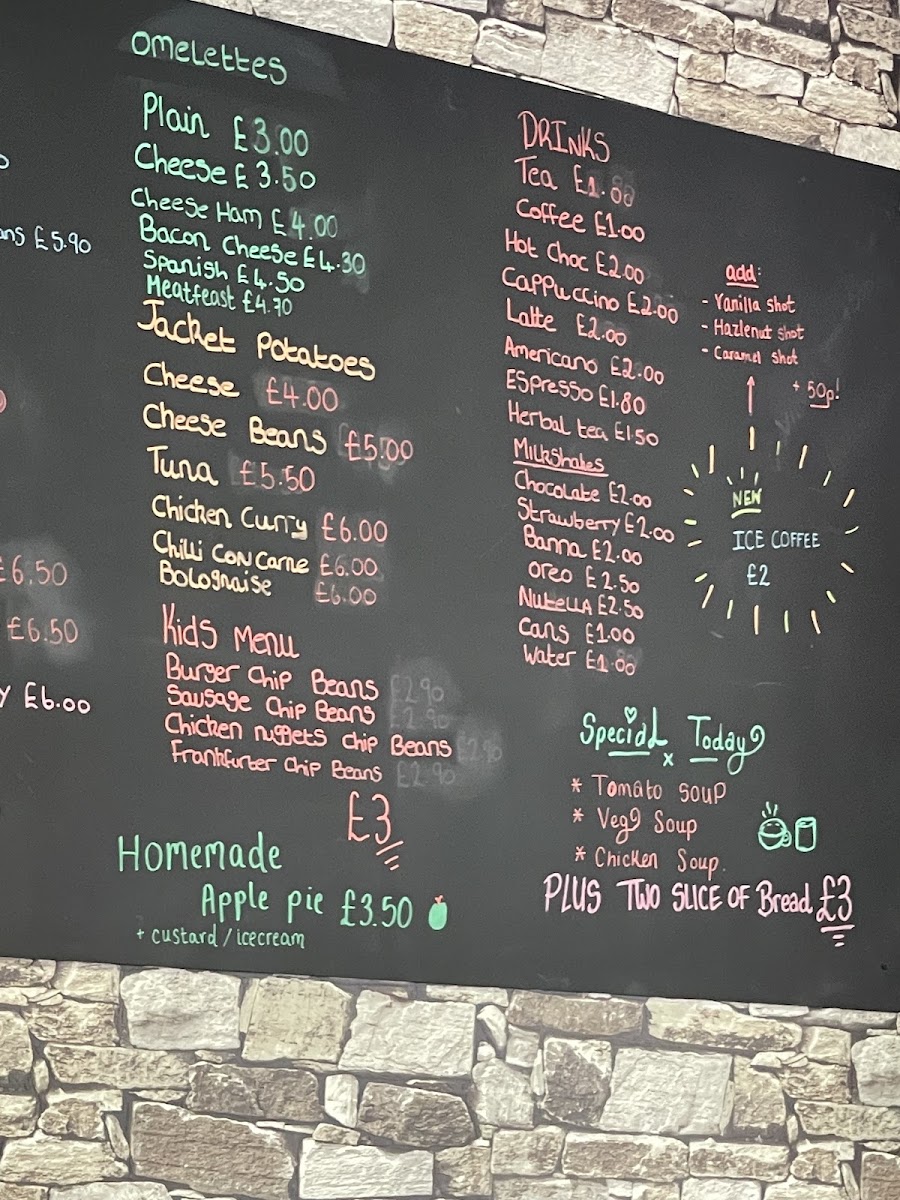 ans £5.90
£6.50
£6.50
y £6.00
Omelettes
Plain £3.00
Cheese £3.50
Cheese Ham £4.00
Bacon Cheese £4.30
Spanish £4.50
Meatfeast £4.70
Jacket Potatoes
Cheese £4.00
Cheese Beans £5.00
Tuna £5.50
Chicken Curry £6.00
Chilli Con Carne £6.00
Bolognaise £6.00
Kids Menu
Burger Chip Beans £2.90
Sausage Chip Beans £2.90
Chicken nuggets Chip Beans £2.90
Frankfurter Chip Beans £2.90
£3
Homemade
Apple pie £3.50
+ custard/icecream
DRINKS
Tea £1.00
Coffee £1.00
Hot Choc £2.00
Cappuccino £2.00
Latte £2.00
Americano £2.00
Espresso £1.80
Herbal tea £1.50
Milkshakes
Chocolate £2.00
Strawberry £2.00
Banna £2.00
Oreo £2.50
Nutella £2.50
Cans £1.00
Water £1.00
add:
- Vanilla shot
- Hazlenut shot
- Caramel shot
+ 50p!
NEW
ICE COFFEE
£2
Special Today
* Tomato soup
* Veg Soup
* Chicken Soup.
PLUS TWO SLICE OF Bread £3